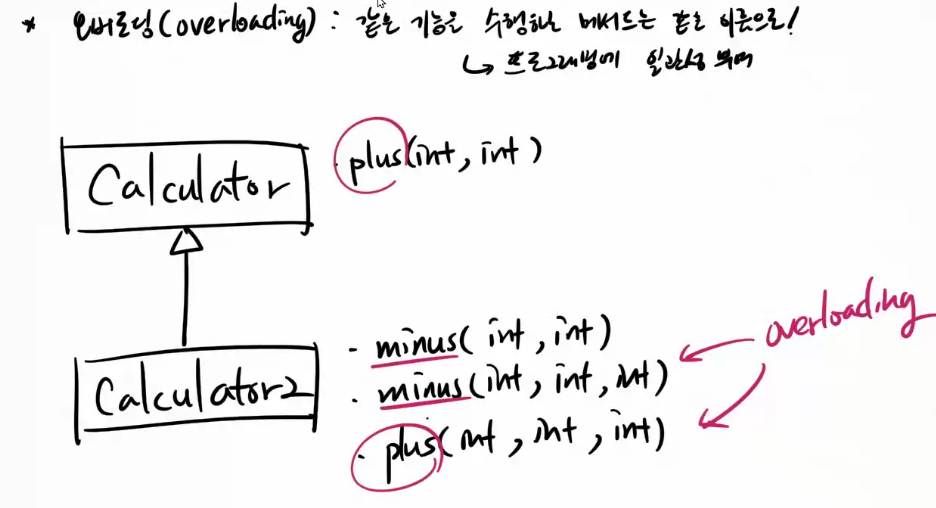 * 오버로딩(overloading) : 같은 기능을 수행하는 메서드는 같은 이름으로!
↳ 프로그래밍에 일관성 부여
Calculator
· plus(int, int)
overloading
· minus( int, int)
· minus(int, int, int)
Calculator2
· plus(int, int, int)